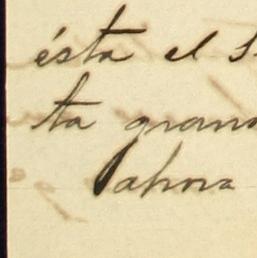 ésta el S
ta gran
Pahora